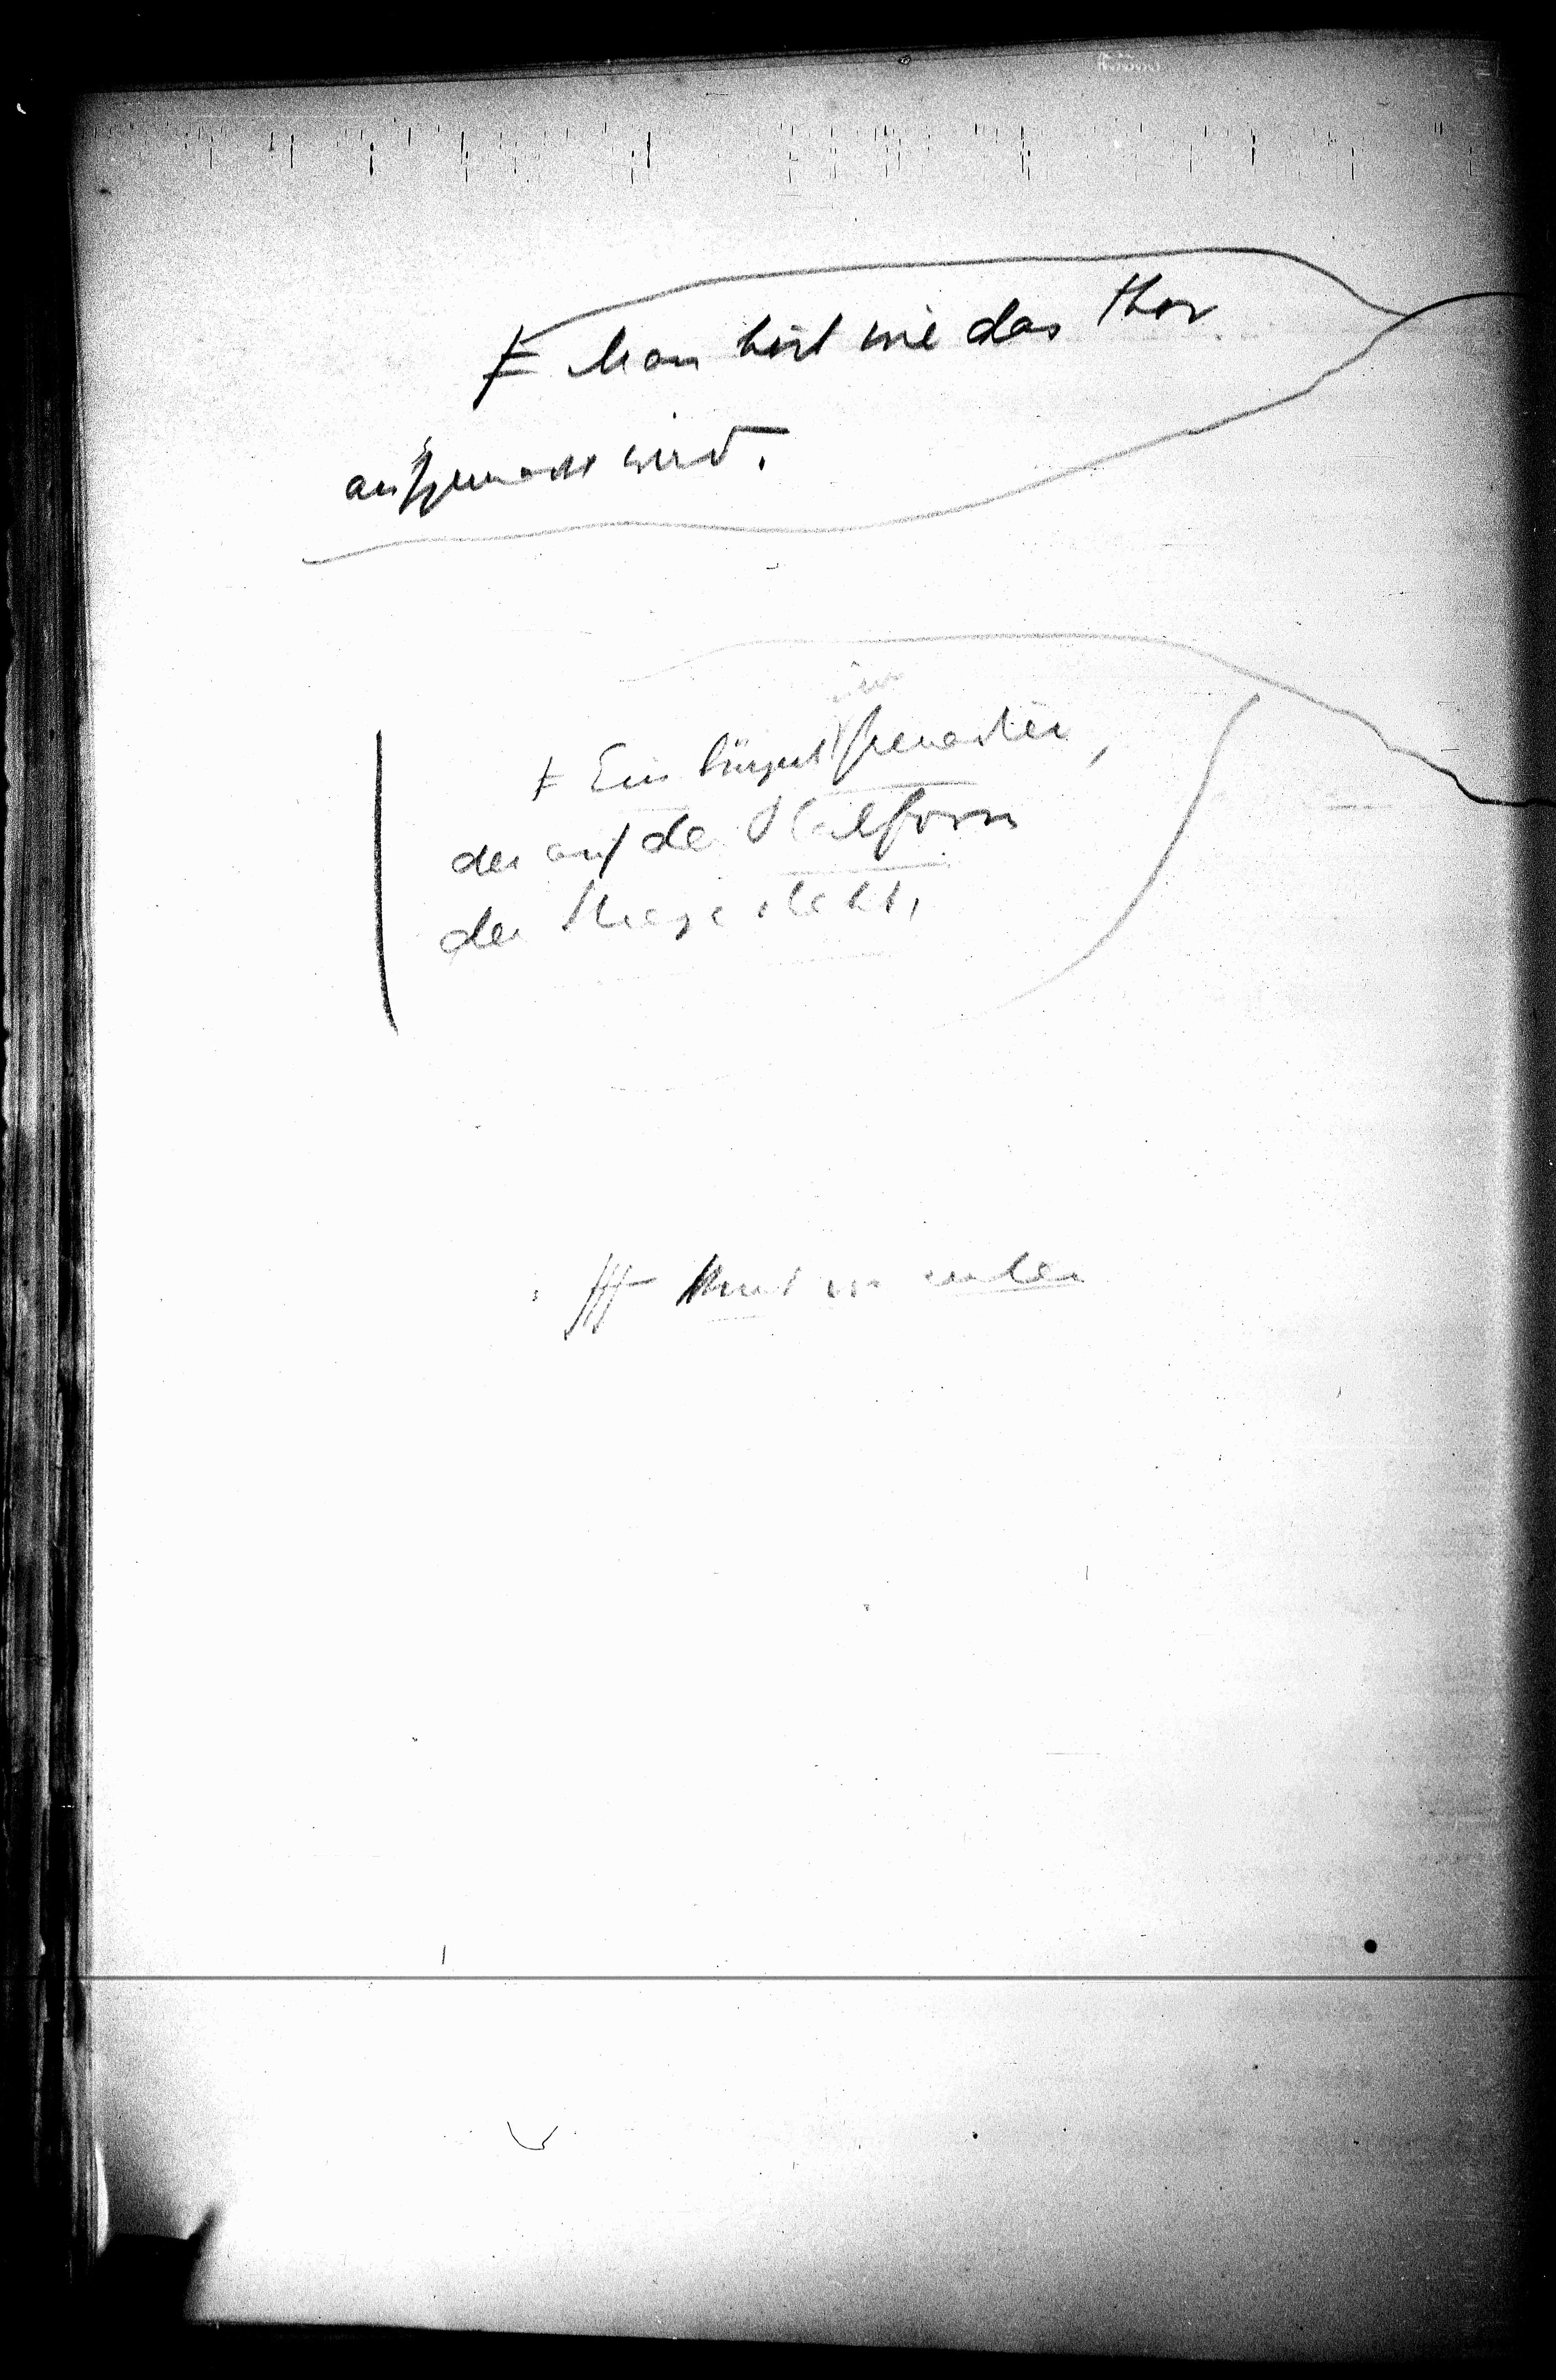 Man hört wie das Thor
aufgemacht wird.
Ein Bürgergrenadier,
der auf der Plattform
der Stiege steht,
von unten